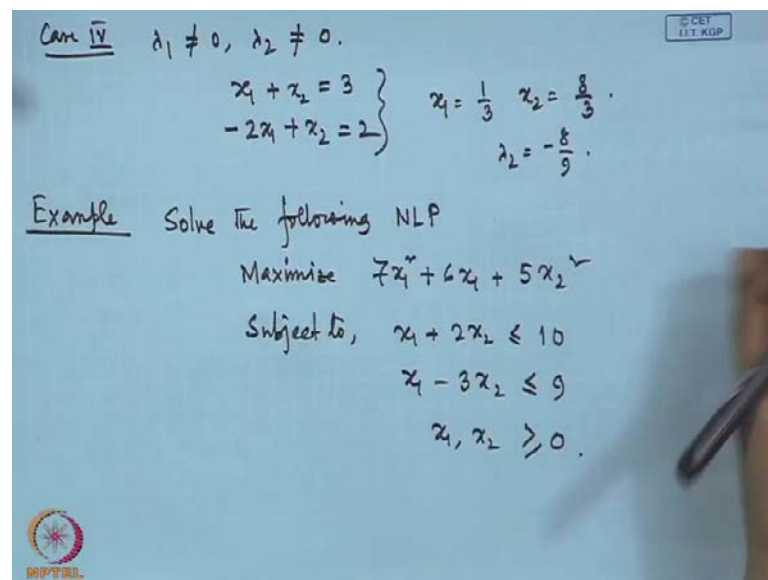 Case IV λ₁ ≠ 0, λ₂ ≠ 0.
© CET
I.I.T. KGP
x₁ + x₂ = 3
-2x₁ + x₂ = 2
x₁ = 1/3 x₂ = 8/3 .
λ₂ = -8/9 .
Example Solve the following NLP
Maximize 7x₁² + 6x₁ + 5x₂²
Subject to, x₁ + 2x₂ ≤ 10
x₁ - 3x₂ ≤ 9
x₁, x₂ ≥ 0 .
NPTEL